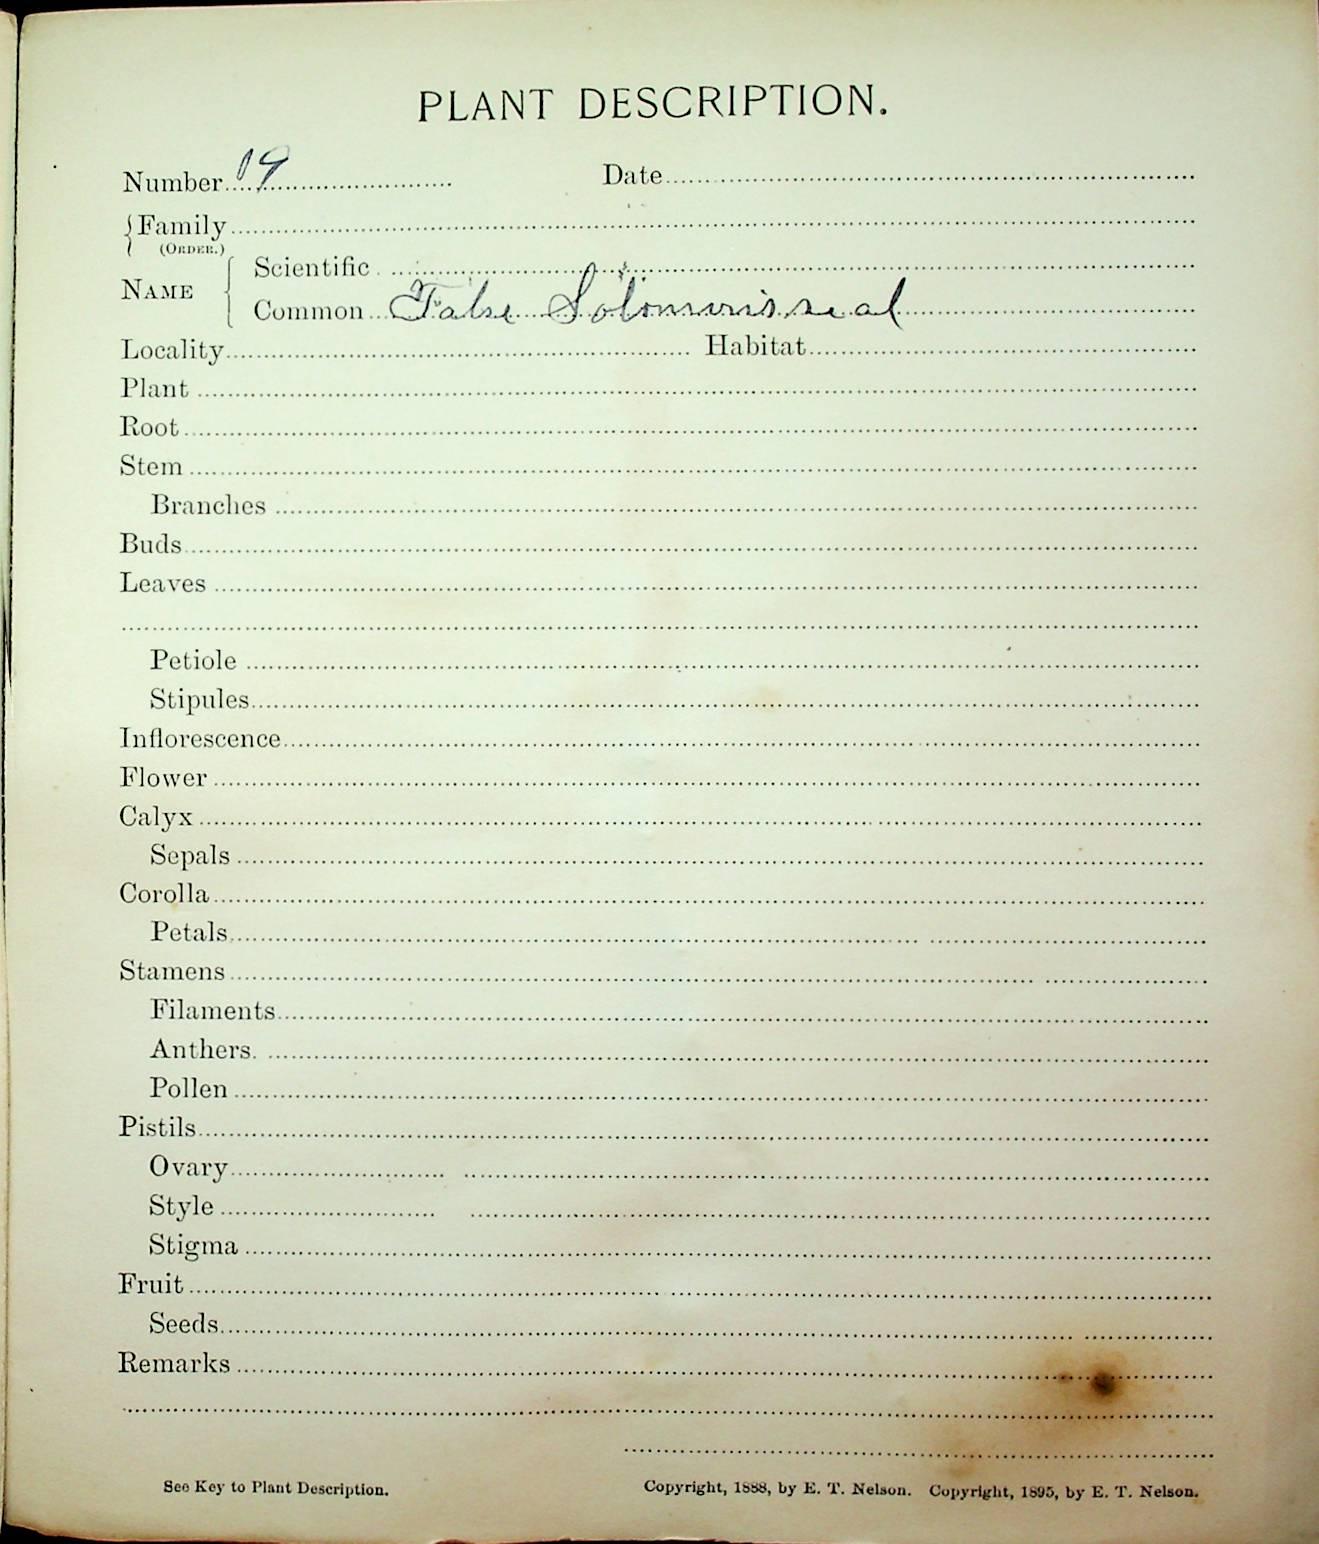 PLANT DESCRIPTION.
Number 19 Date
Family
(ORDER.)
NAME
Scientific
Common False Solomon's seal
Locality Habitat
Plant
Root
Stem
Branches
Buds
Leaves
Petiole
Stipules
Inflorescence
Flower
Calyx
Sepals
Corolla
Petals
Stamens
Filaments
Anthers.
Pollen
Pistils
Ovary
Style
Stigma
Fruit
Seeds
Remarks
See Key to Plant Description. Copyright, 1888, by E. T. Nelson. Copyright, 1895, by E. T. Nelson.